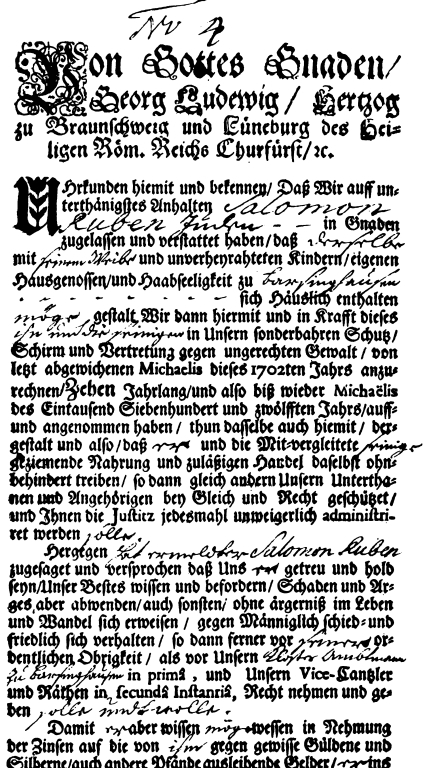 No 4
Von Gottes Gnaden/
Georg Ludewig / Hertzog
zu Braunschweig und Lüneburg des Hei-
ligen Röm. Reichs Churfürst/ ꝛc.
UHrkunden hiemit und bekennen/ Daß Wir auff un-
terthänigstes Anhalten Salomon
Ruben Juden - - in Gnaden
zugelassen und verstattet haben/ daß derselbe
mit seinem Weibe und unverheyrahteten Kindern/ eigenen
Hausgenossen/ und Haabseeligkeit zu Barsinghausen
- - - - - - - sich Häuslich enthalten
möge, gestalt Wir dann hiermit und in Krafft dieses
ihn und die seinigen in Unsern sonderbahren Schutz/
Schirm und Vertretung gegen ungerechten Gewalt / von
letzt abgewichenen Michaelis dieses 1702ten Jahrs anzu-
rechnen/ Zehen Jahrlang/ und also biß wieder Michaëlis
des Eintausend Siebenhundert und zwölfften Jahrs/ auff-
und angenommen haben / thun dasselbe auch hiemit / der-
gestalt und also/ daß er und die Mit-vergleitete seinige
geziemende Nahrung und zuläßigen Handel daselbst ohn-
behindert treiben/ so dann gleich andern Unsern Untertha-
nen und Angehörigen bey Gleich und Recht geschützet/
und Ihnen die Justitz jedesmahl unweigerlich administri-
ret werden solle.
Hergegen hat ermeldter Salomon Ruben
zugesaget und versprochen daß Uns er getreu und hold
seyn/ Unser Bestes wissen und befordern/ Schaden und Ar-
ges aber abwenden/ auch sonsten/ ohne ärgerniß im Leben
und Wandel sich erweisen / gegen Männiglich schied- und
friedlich sich verhalten / so dann ferner vor seiner or-
dentlichen Obrigkeit / als vor Unsern Closter Ambtmann
zu Barsinghausen in primâ , und Unsern Vice-Cantzler
und Räthen in secundâ Instantiâ, Recht nehmen und ge-
ben solle und wolle.
Damit er aber wissen möge wessen in Nehmung
der Zinsen auf die von ihm gegen gewisse Güldene und
Silberne/ auch andere Pfande ausleihende Gelder/ er ins